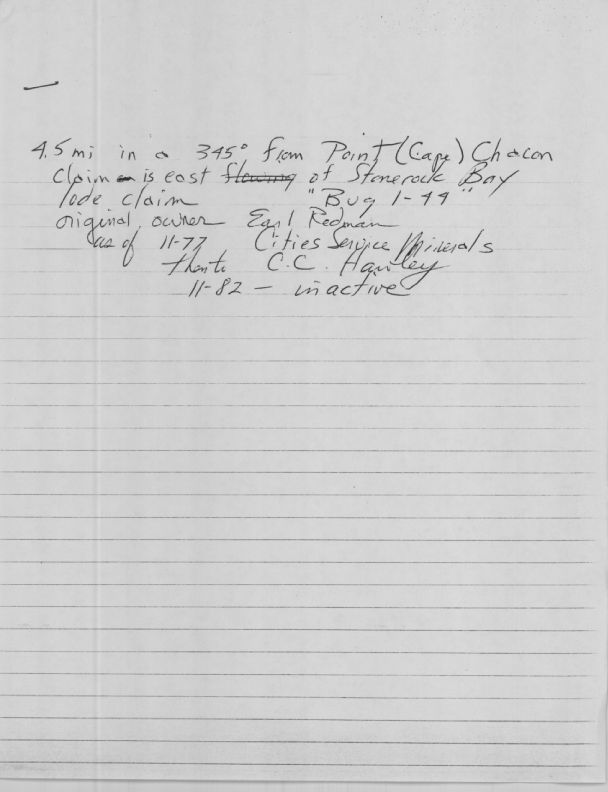 4.5 mi in a 345° from Point (Cape) Chacon
Claim is east flowing of Stonerock Bay
lode claim "Bug 1-44"
original owner Earl Redman
as of 11-77 Cities Service Minerals
then to C.C. Hawley
11-82 - inactive